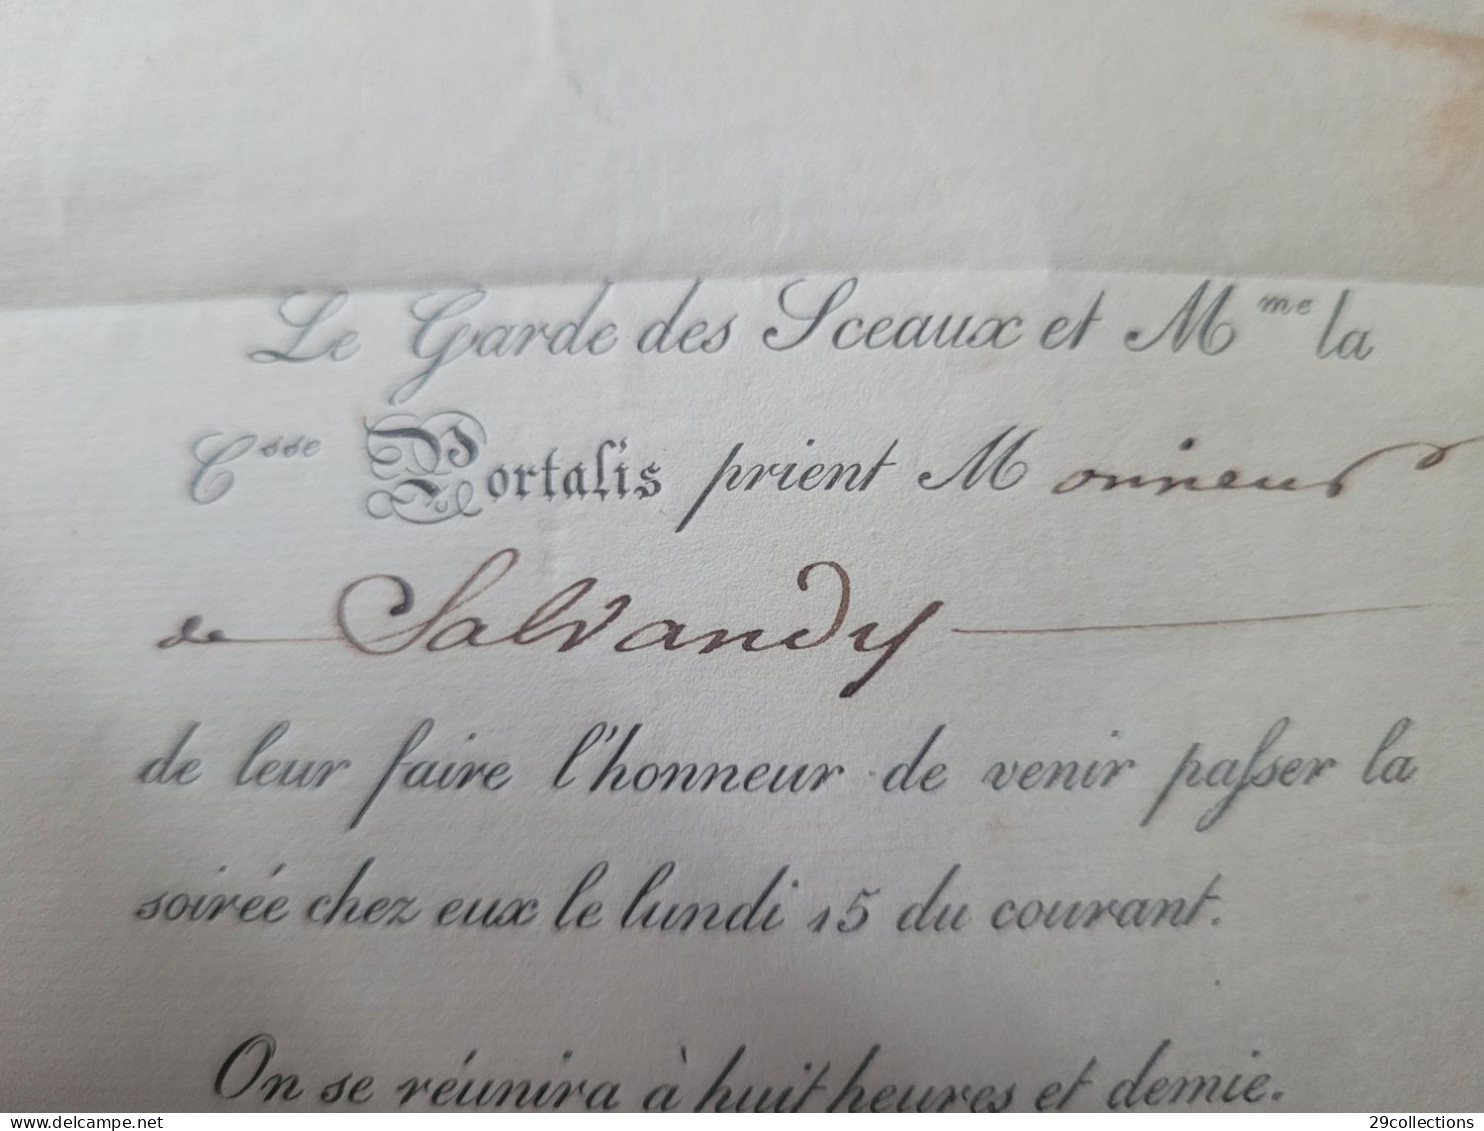 Le Garde des Sceaux et Mme la
Csse Portalis prient Monsieur
de Salvandy
de leur faire l'honneur de venir passer la
soirée chez eux le lundi 15 du courant.
On se réunira à huit heures et demie.
delcampe.net
29collections